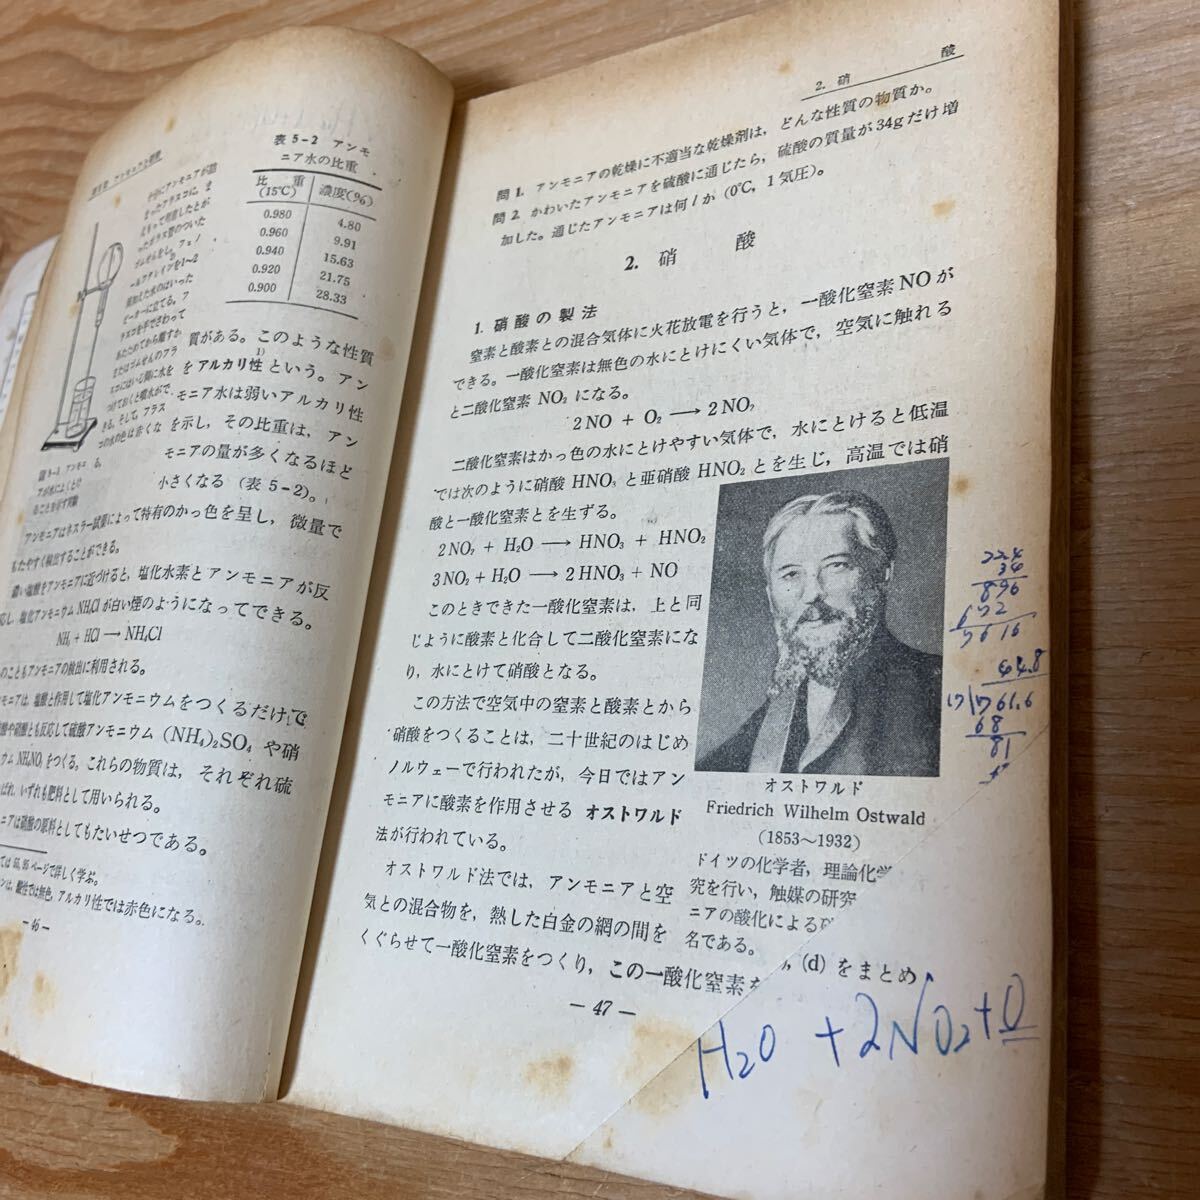 表5-2 アンモ
ニア水の比重
比 重
(15℃)
濃度(%)
0.980 4.80
0.960 9.91
0.940 15.63
0.920 21.75
0.900 28.33
質がある。このような性質
をアルカリ性1)という。アン
モニア水は弱いアルカリ性
を示し，その比重は，アン
モニアの量が多くなるほど
小さくなる（表5-2）。
アンモニアはネスラー試薬によって特有のかっ色を呈し，微量で
もたやすく検出することができる。
濃い塩酸をアンモニアに近づけると，塩化水素とアンモニアが反
応し，塩化アンモニウム NH₄Cl が白い煙のようになってできる。
NH₃ + HCl → NH₄Cl
のこともアンモニアの検出に利用される。
モニアは，塩酸と作用して塩化アンモニウムをつくるだけで
酸や硝酸とも反応して硫酸アンモニウム (NH₄)₂SO₄ や硝
ウム NH₄NO₃ をつくる。これらの物質は，それぞれ硫
ばれ，いずれも肥料として用いられる。
ニアは硝酸の原料としてもたいせつである。
ては 55, 95 ページで詳しく学ぶ。
ンは，酸性では無色，アルカリ性では赤色になる。
— 46 —
2. 硝 酸
問 1. アンモニアの乾燥に不適当な乾燥剤は，どんな性質の物質か。
問 2. かわいたアンモニアを硫酸に通じたら，硫酸の質量が34gだけ増
加した。通じたアンモニアは何 l か (0℃, 1 気圧)。
2. 硝 酸
1. 硝酸の製法
窒素と酸素との混合気体に火花放電を行うと，一酸化窒素 NO が
できる。一酸化窒素は無色の水にとけにくい気体で，空気に触れる
と二酸化窒素 NO₂ になる。
2 NO + O₂ → 2 NO₂
二酸化窒素はかっ色の水にとけやすい気体で，水にとけると低温
では次のように硝酸 HNO₃ と亜硝酸 HNO₂ とを生じ，高温では硝
酸と一酸化窒素とを生ずる。
2 NO₂ + H₂O → HNO₃ + HNO₂
3 NO₂ + H₂O → 2 HNO₃ + NO
このときできた一酸化窒素は，上と同
じように酸素と化合して二酸化窒素にな
り，水にとけて硝酸となる。
この方法で空気中の窒素と酸素とから
硝酸をつくることは，二十世紀のはじめ
ノルウェーで行われたが，今日ではアン
モニアに酸素を作用させる オストワルド
法が行われている。
オストワルド法では，アンモニアと空
気との混合物を，熱した白金の網の間を
くぐらせて一酸化窒素をつくり，この一酸化窒素を
オストワルド
Friedrich Wilhelm Ostwald
(1853〜1932)
ドイツの化学者，理論化学
究を行い，触媒の研究
ニアの酸化による硝
名である。
(d) をまとめ
— 47 —
22.4
34
896
672
7616
44.8
17)761.6
68
81
H₂O + 2NO₂ + O